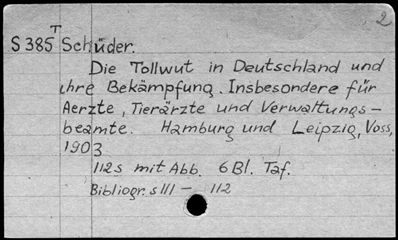 2
T
S 385 Schüder.
Die Tollwut in Deutschland und
ihre Bekämpfung. Insbesondere für
Aerzte, Tierärzte und Verwaltungs-
beamte. Hamburg und Leipzig, Voss,
1903
112s mit Abb. 6 Bl. Taf.
Bibliogr. s 111 - 112